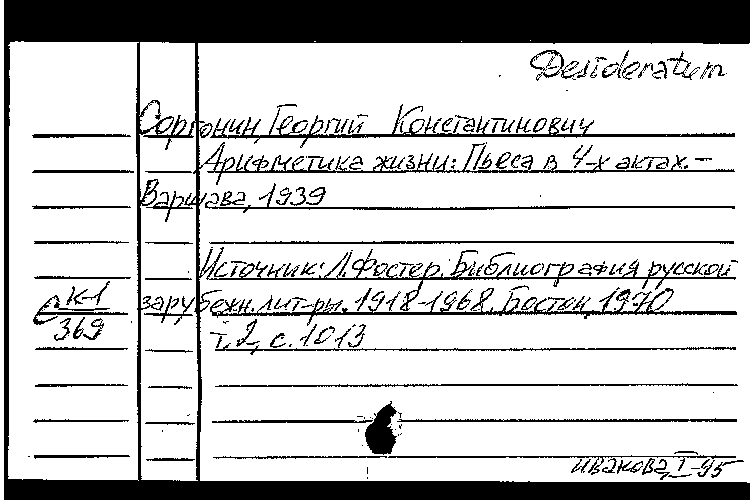 Desideratum
Соргонин, Георгий Константинович
Арифметика жизни: Пьеса в 4-х актах. –
Варшава, 1939
Источник: Л. Фостер. Библиография русской
К-1 зарубежн. лит-ры. 1918-1968. Бостон, 1970
369 т. 2, с. 1013
Иванова, I-95